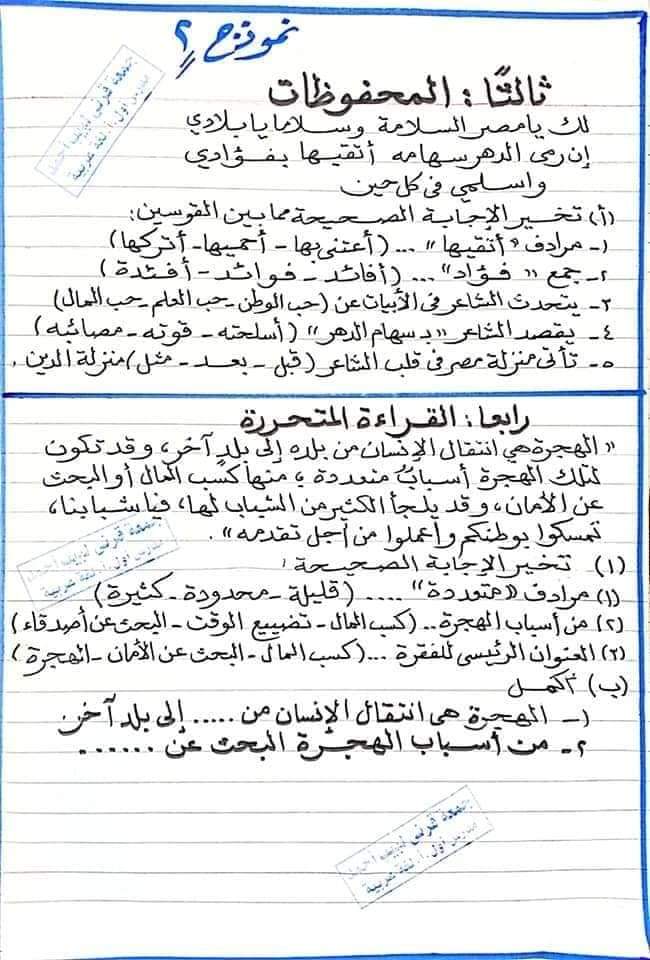 نموذج ٢
ثالثًا: المحفوظات
لك يا مصر السلامة وسلاما يا بلادي
إن رمى الدهر سهامه أتقيها بفؤادي
واسلمي في كل حين
(أ) تخير الإجابة الصحيحة مما بين القوسين:
١- مرادف "أتقيها" ... (أعتنى بها - أحميها - أتركها)
٢- جمع "فؤاد" ... (أفائد - فوائد - أفئدة)
٣- يتحدث الشاعر فى الأبيات عن (حب الوطن - حب العلم - حب المال)
٤- يقصد الشاعر "بـ سهام الدهر" (أسلحته - قوته - مصائبه)
٥- تأتى منزلة مصر فى قلب الشاعر (قبل - بعد - مثل) منزلة الدين.
رابعا: القراءة المتحررة
"الهجرة هي انتقال الإنسان من بلده إلى بلدٍ آخر، وقد تكون
لتلك الهجرة أسبابٌ متعددة؛ منها كسب المال أو البحث
عن الأمان، وقد يلجأ الكثير من الشباب لها، فيا شبابنا،
تمسكوا بوطنكم وأعملوا من أجل تقدمه".
(١) تخير الإجابة الصحيحة:
(١) مرادف "متعددة" .... (قليلة - محدودة - كثيرة)
(٢) من أسباب الهجرة.. (كسب المال - تضييع الوقت - البحث عن أصدقاء)
(٣) العنوان الرئيسى للفقرة ... (كسب المال - البحث عن الأمان - الهجرة)
(ب) أكمل
١- الهجرة هي انتقال الإنسان من ..... إلى بلد آخر.
٢- من أسباب الهجرة البحث عن ......
جمعة قرنى لبيب احمد
مدرس أول أ. لغة عربية